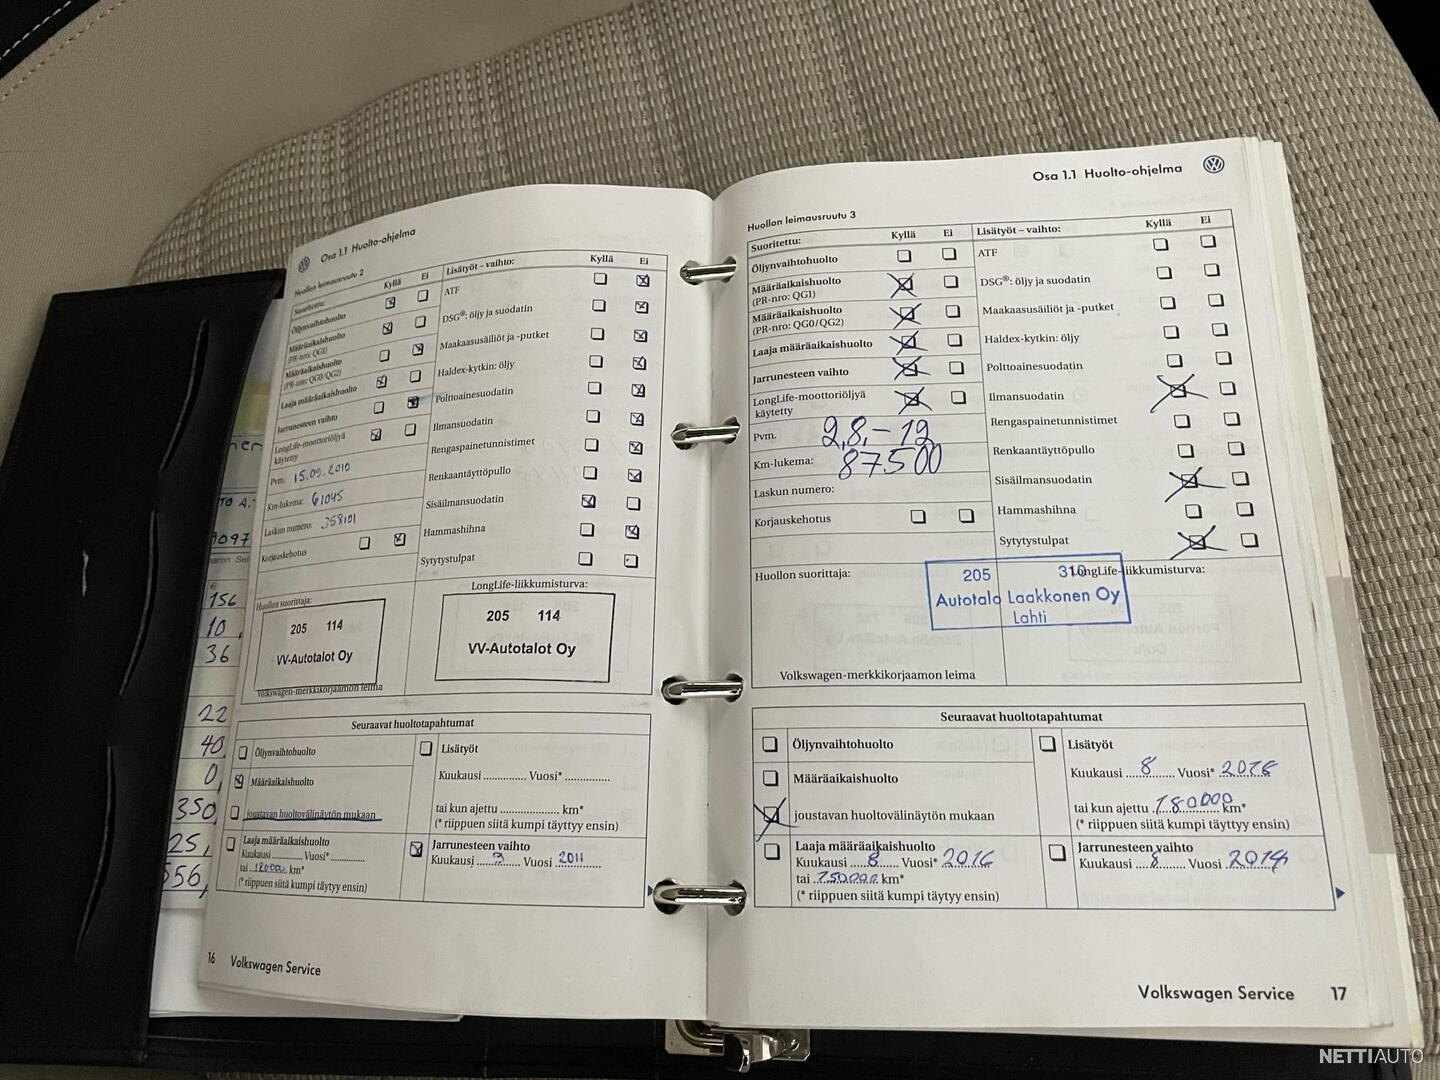 Osa 1.1 Huolto-ohjelma
Huollon leimausruutu 2
Suoritettu: Kyllä Ei
Öljynvaihtohuolto
Määräaikaishuolto
(PR-nro: QG1)
Määräaikaishuolto
(PR-nro: QG0/QG2)
Laaja määräaikaishuolto
Jarrunesteen vaihto
LongLife-moottoriöljyä
käytetty
Pvm. 15.09.2010
Km-lukema: 61045
Laskun numero: 358101
Korjauskehotus
Lisätyöt – vaihto: Kyllä Ei
ATF
DSG®: öljy ja suodatin
Maakaasusäiliöt ja -putket
Haldex-kytkin: öljy
Polttoainesuodatin
Ilmansuodatin
Rengaspainetunnistimet
Renkaantäyttöpullo
Sisäilmansuodatin
Hammashihna
Sytytystulpat
Huollon suorittaja:
205 114
VV-Autotalot Oy
Volkswagen-merkkikorjaamon leima
LongLife-liikkumisturva:
205 114
VV-Autotalot Oy
Seuraavat huoltotapahtumat
Öljynvaihtohuolto
Määräaikaishuolto
joustavan huoltovälinäytön mukaan
Laaja määräaikaishuolto
Kuukausi ............ Vuosi* ............
tai 120000 km*
(* riippuen siitä kumpi täyttyy ensin)
Lisätyöt
Kuukausi ............ Vuosi* ............
tai kun ajettu ............ km*
(* riippuen siitä kumpi täyttyy ensin)
Jarrunesteen vaihto
Kuukausi 9 Vuosi 2011
16 Volkswagen Service
156
10
36
22
40
0,
350
25,
556,
Osa 1.1 Huolto-ohjelma
Huollon leimausruutu 3
Suoritettu: Kyllä Ei
Öljynvaihtohuolto
Määräaikaishuolto
(PR-nro: QG1)
Määräaikaishuolto
(PR-nro: QG0/QG2)
Laaja määräaikaishuolto
Jarrunesteen vaihto
LongLife-moottoriöljyä
käytetty
Pvm. 2,8,-12
Km-lukema: 87500
Laskun numero:
Korjauskehotus
Lisätyöt – vaihto: Kyllä Ei
ATF
DSG®: öljy ja suodatin
Maakaasusäiliöt ja -putket
Haldex-kytkin: öljy
Polttoainesuodatin
Ilmansuodatin
Rengaspainetunnistimet
Renkaantäyttöpullo
Sisäilmansuodatin
Hammashihna
Sytytystulpat
Huollon suorittaja:
LongLife-liikkumisturva:
205 310
Autotalo Laakkonen Oy
Lahti
Volkswagen-merkkikorjaamon leima
Seuraavat huoltotapahtumat
Öljynvaihtohuolto
Määräaikaishuolto
joustavan huoltovälinäytön mukaan
Laaja määräaikaishuolto
Kuukausi 8 Vuosi* 2016
tai 150000 km*
(* riippuen siitä kumpi täyttyy ensin)
Lisätyöt
Kuukausi 8 Vuosi*
tai kun ajettu 180000 km*
(* riippuen siitä kumpi täyttyy ensin)
Jarrunesteen vaihto
Kuukausi 8 Vuosi 2014
Volkswagen Service 17
NETTIAUTO